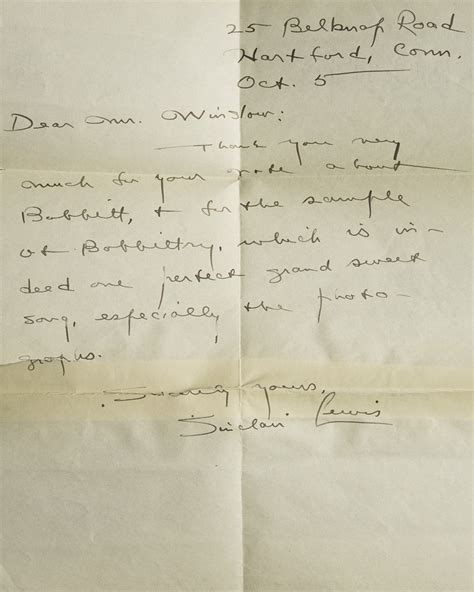 25 Belknap Road
Hartford, Conn.
Oct. 5
Dear Mr. Winslow:
Thank you very
much for your note about
Babbitt, & for the sample
of Babbittry, which is in-
deed one perfect grand sweet
song, especially the photo-
graphs.
Sincerely yours,
Sinclair Lewis